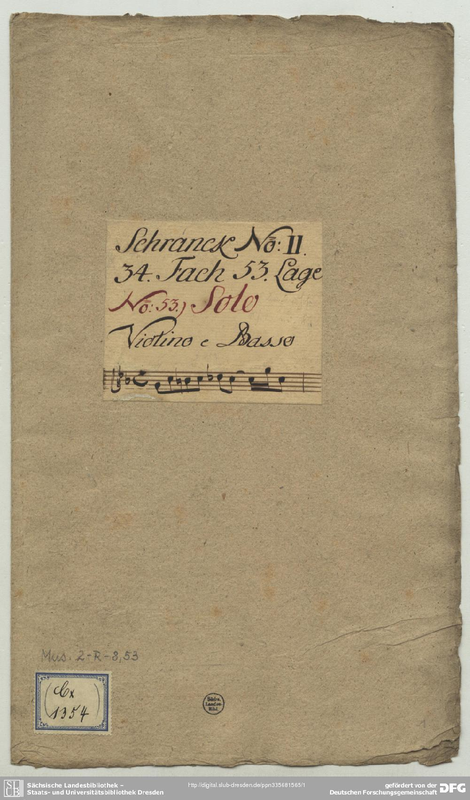 Schranck No: II.
34. Fach 53. Lage
No: 53.) Solo
Violino e Basso
Mus. 2-R-8,53
(Cx
1354)
Sächsische Landesbibliothek –
Staats- und Universitätsbibliothek Dresden
http://digital.slub-dresden.de/ppn335681565/1
gefördert von der
Deutschen Forschungsgemeinschaft
DFG